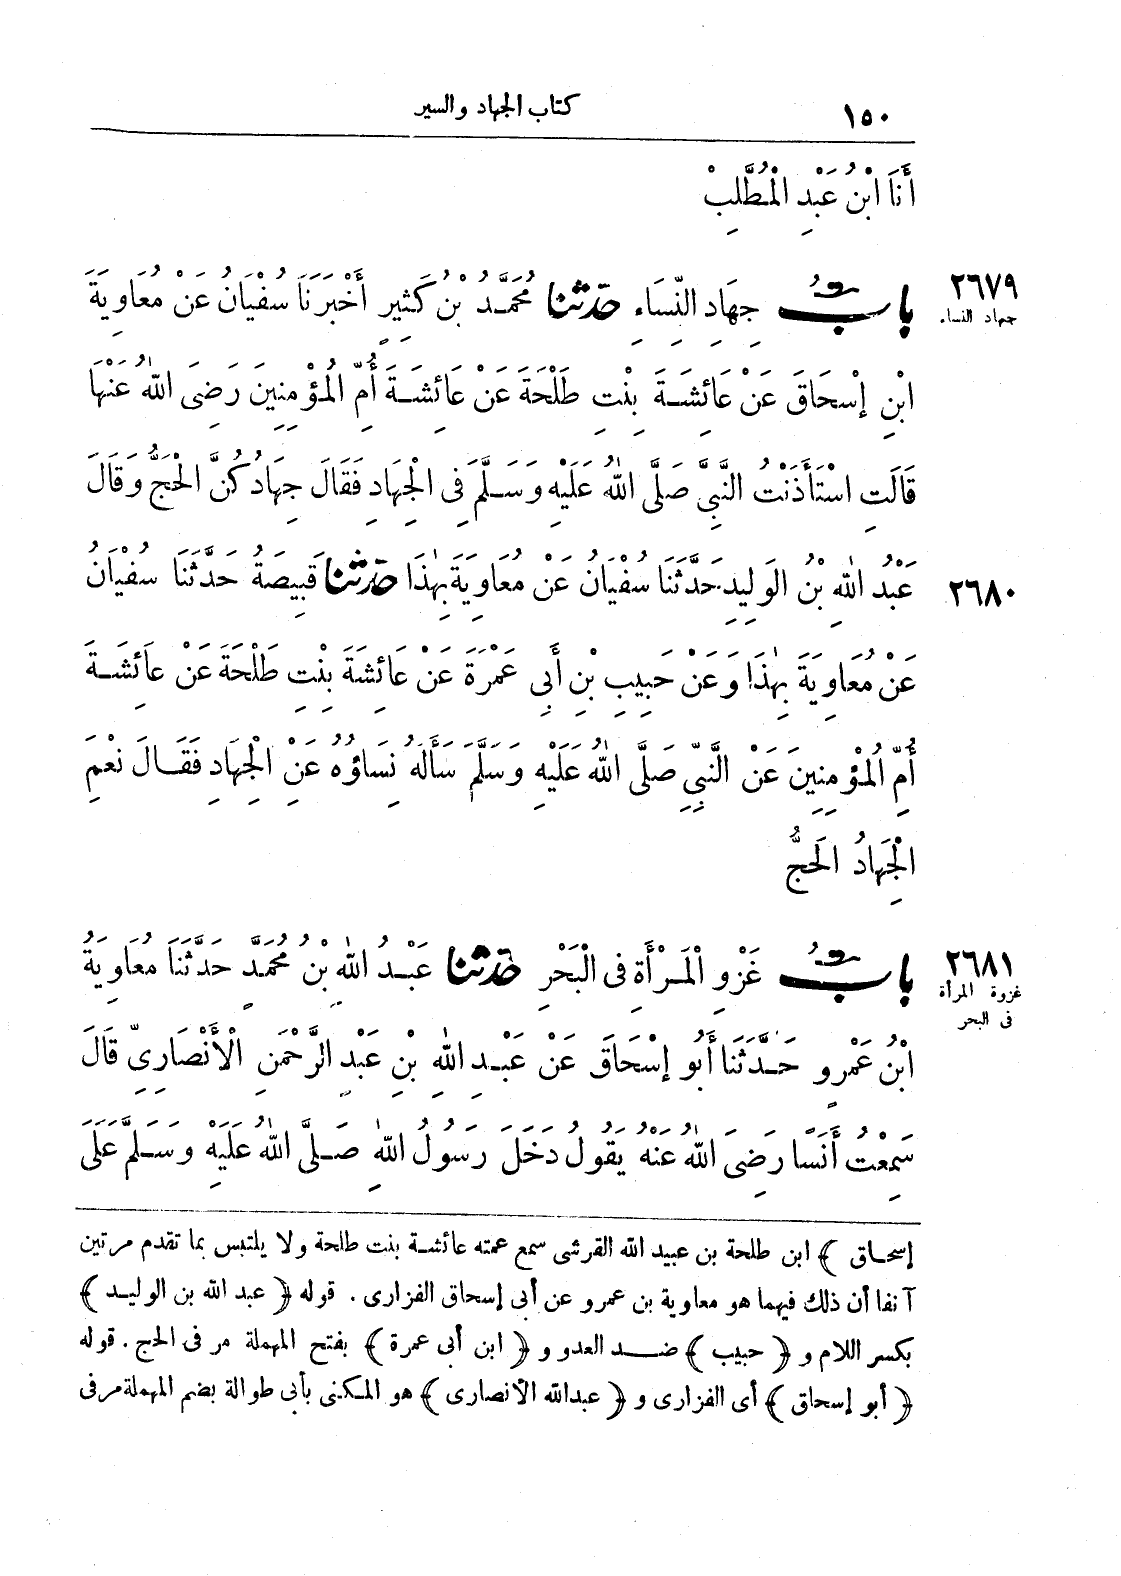 ١٥٠ كتاب الجهاد والسير
أَنَا ابْنُ عَبْدِ الْمُطَّلِبْ
٢٦٧٩ بابٌ جِهَادِ النِّسَاءِ حدثنا مُحَمَّدُ بْنُ كَثِيرٍ أَخْبَرَنَا سُفْيَانُ عَنْ مُعَاوِيَةَ
جهاد النساء
ابْنِ إِسْحَاقَ عَنْ عَائِشَةَ بِنْتِ طَلْحَةَ عَنْ عَائِشَةَ أُمِّ الْمُؤْمِنِينَ رَضِىَ اللهُ عَنْهَا
قَالَتِ اسْتَأْذَنْتُ النَّبِيَّ صَلَّى اللهُ عَلَيْهِ وَسَلَّمَ فِى الْجِهَادِ فَقَالَ جِهَادُكُنَّ الْحَجُّ وَقَالَ
٢٦٨٠ عَبْدُ اللهِ بْنُ الوَلِيدِ حَدَّثَنَا سُفْيَانُ عَنْ مُعَاوِيَةَ بِهٰذَا حدثنا قَبِيصَةُ حَدَّثَنَا سُفْيَانُ
عَنْ مُعَاوِيَةَ بِهٰذَا وَعَنْ حَبِيبِ بْنِ أَبِى عَمْرَةَ عَنْ عَائِشَةَ بِنْتِ طَلْحَةَ عَنْ عَائِشَةَ
أُمِّ الْمُؤْمِنِينَ عَنِ النَّبِيِّ صَلَّى اللهُ عَلَيْهِ وَسَلَّمَ سَأَلَهُ نِسَاؤُهُ عَنِ الْجِهَادِ فَقَالَ نِعْمَ
الْجِهَادُ الحَجُّ
٢٦٨١ بابٌ غَزْوِ الْمَرْأَةِ فِى الْبَحْرِ حدثنا عَبْدُ اللهِ بْنُ مُحَمَّدٍ حَدَّثَنَا مُعَاوِيَةُ
غزوة المرأة
فى البحر
ابْنُ عَمْرٍو حَدَّثَنَا أَبُو إِسْحَاقَ عَنْ عَبْدِ اللهِ بْنِ عَبْدِ الرَّحْمٰنِ الْأَنْصَارِيِّ قَالَ
سَمِعْتُ أَنَسًا رَضِىَ اللهُ عَنْهُ يَقُولُ دَخَلَ رَسُولُ اللهِ صَلَّى اللهُ عَلَيْهِ وَسَلَّمَ عَلَى
إسحاق ﴾ ابن طلحة بن عبيد الله القرشى سمع عمته عائشة بنت طلحة ولا يلتبس بما تقدم مرتين
آنفا أن ذلك فيهما هو معاوية بن عمرو عن أبى إسحاق الفزارى . قوله ﴿ عبد الله بن الوليد ﴾
بكسر اللام و ﴿ حبيب ﴾ ضد العدو و ﴿ ابن أبى عمرة ﴾ بفتح المهملة مر فى الحج . قوله
﴿ أبو إسحاق ﴾ أى الفزارى و ﴿ عبدالله الأنصارى ﴾ هو المكنى بأبى طوالة بضم المهملة مر فى